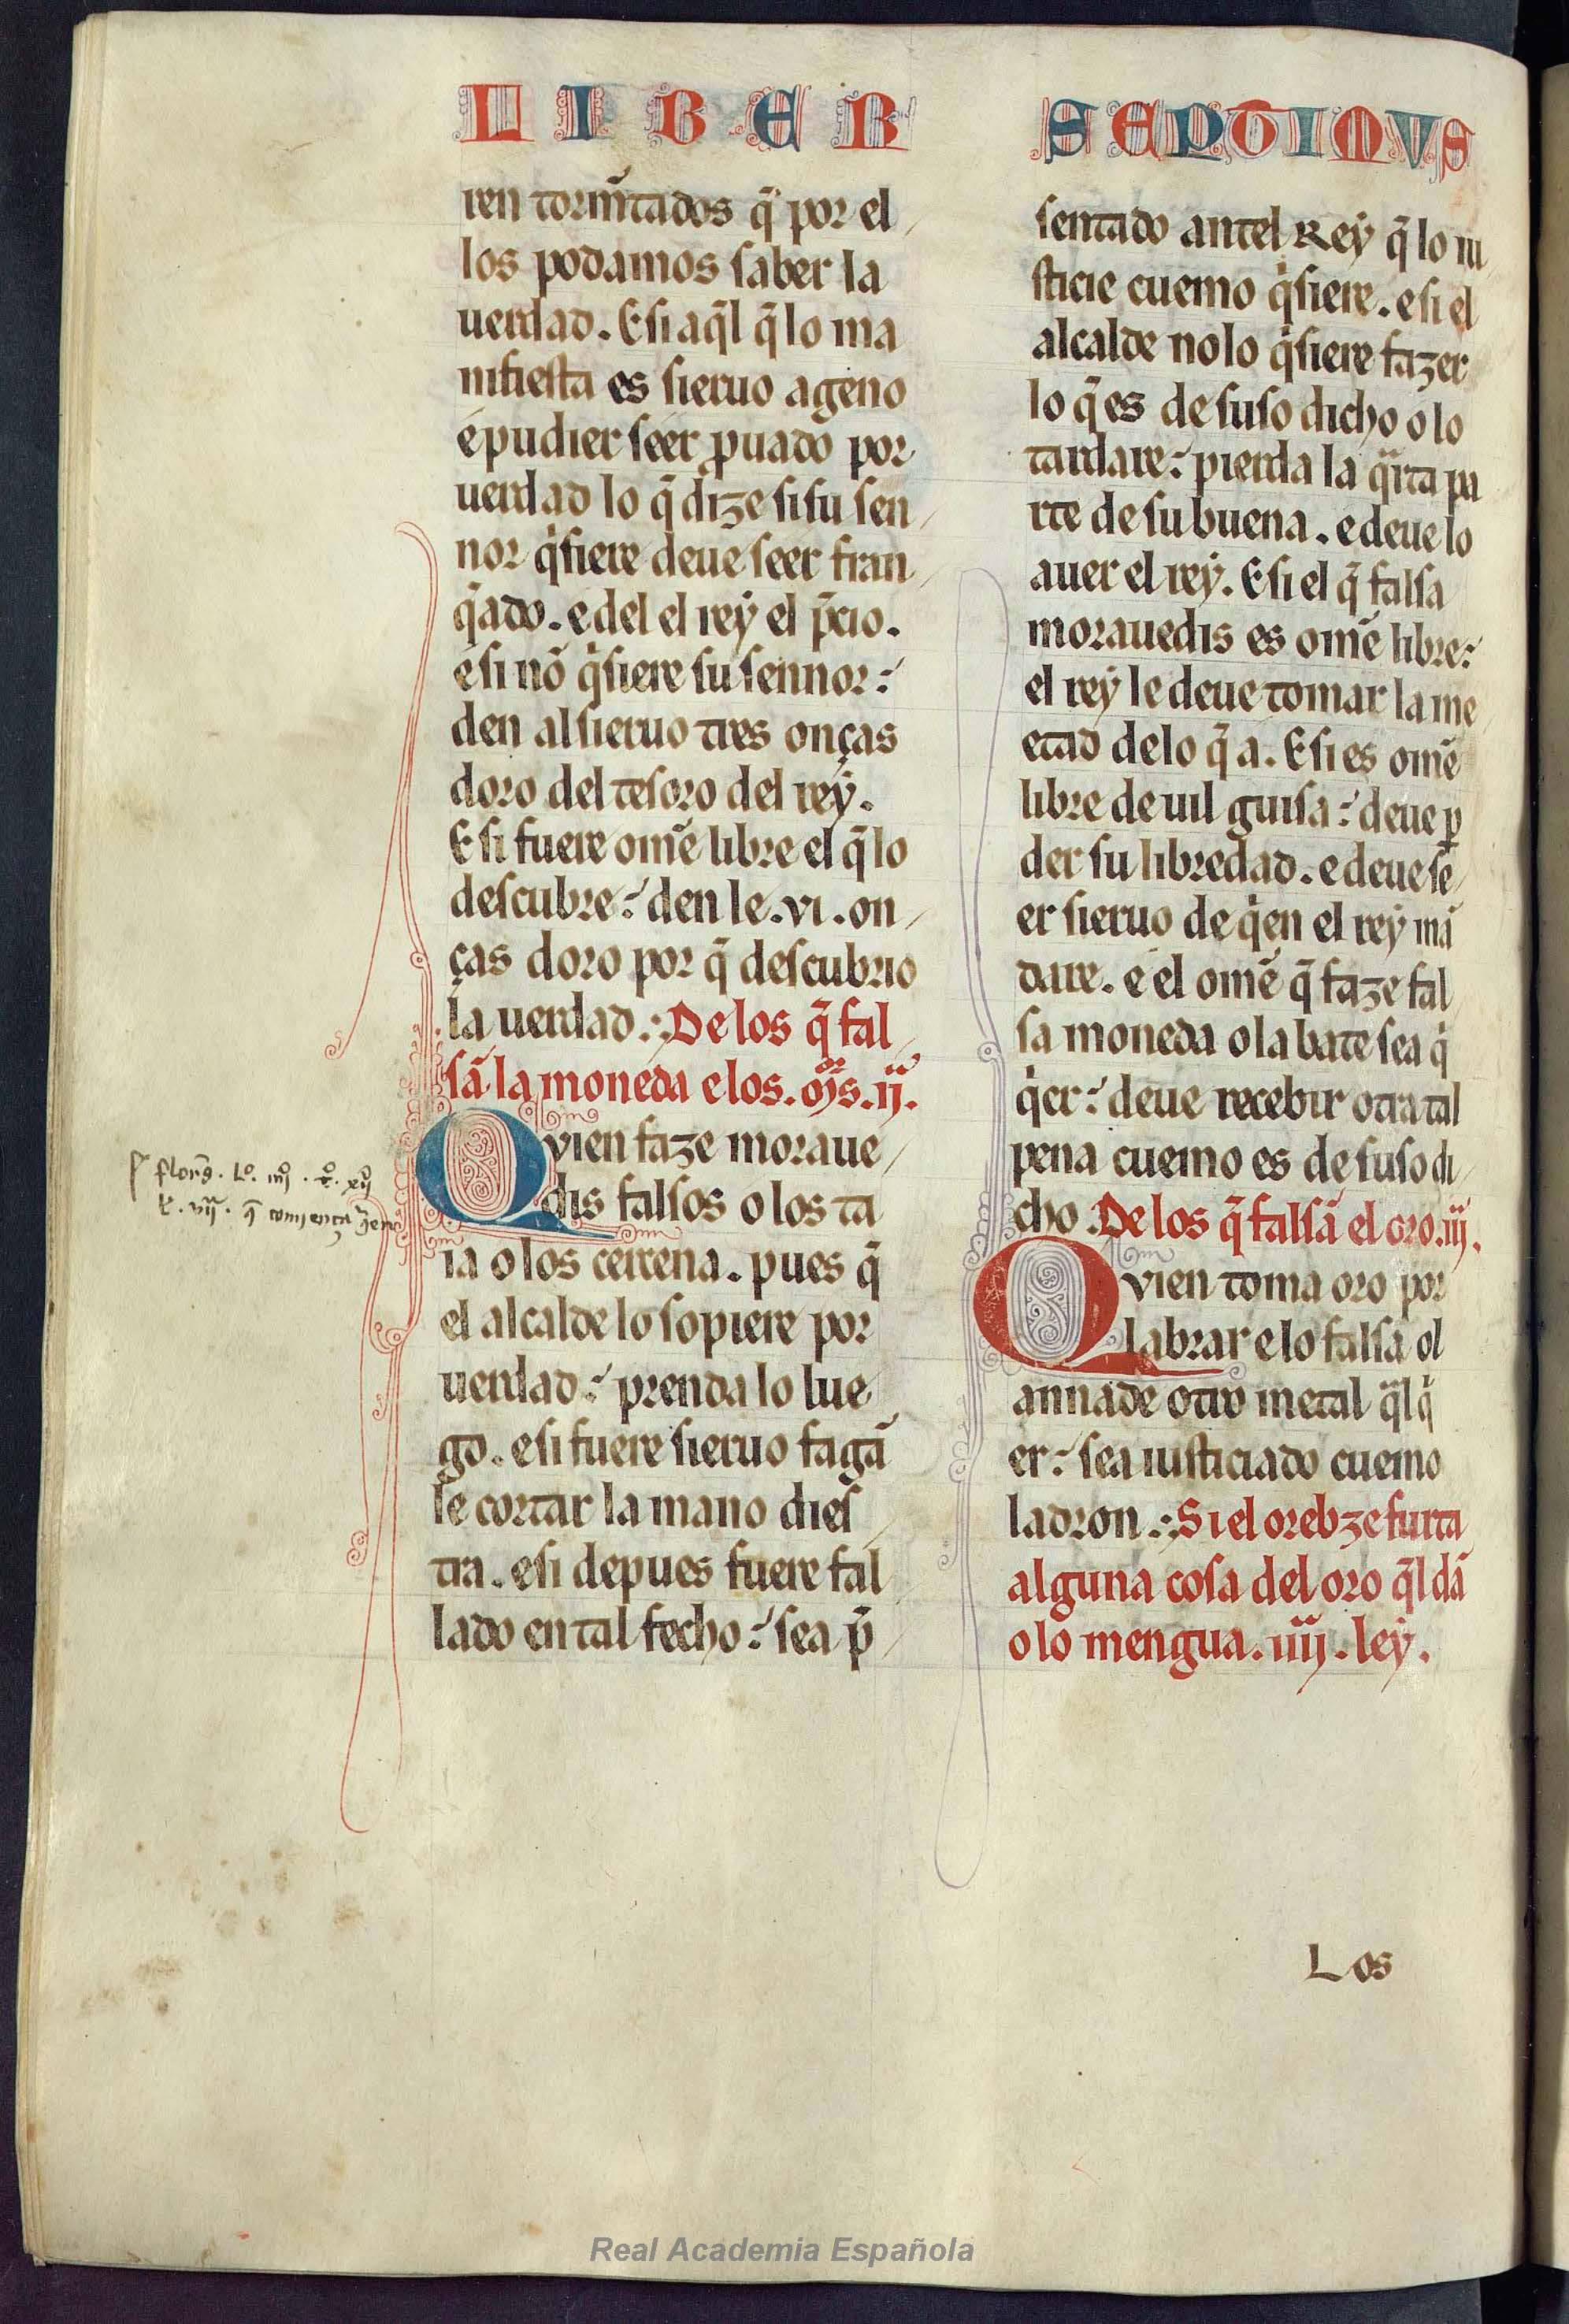 LIBER SEPTIMUS
ren torm̄tados q̄ por el
los podamos saber la
uerdad. E si aq̄l q̄ lo ma
nifiesta es sieruo ageno
e pudier seer ꝓuado por
uerdad lo q̄ dize si su sen
nor q̇siere deue seer fran
q̄ado. e del el rey el p̄cio.
e si nō q̇siere su sennor:
den al sieruo tres onças
doro del tesoro del rey.
E si fuere ome libre el q̄ lo
descubre: den le .vi. on
ças doro por q̄ descubrio
la uerdad. De los q̄ fal
sā la moneda e los. .ij.
Qvien faze moraue
dis falsos o los ta
ia o los cercena. pues q̄
el alcalde lo sopiere por
uerdad: prenda lo lue
go. e si fuere sieruo fagā
le cortar la mano dies
tra. e si depues fuere fal
lado en tal fecho: sea p̄
sentado antel Rey q̄ lo iu
sticie cuemo q̇siere. e si el
alcalde no lo q̇siere fazer
lo q̄ es de suso dicho o lo
tardare: pierda la q̄rta pa
rte de su buena. e deue lo
auer el rey. E si el q̄ falsa
morauedis es omē libre:
el rey le deue tomar la me
etad de lo q̄ a. E si es omē
libre de uil guisa: deue ꝑ
der su libredad. e deue se
er sieruo de q̇en el rey mā
dare. e el omē q̄ faze fal
sa moneda o la bate sea q̇
q̇er: deue recebir otra tal
pena cuemo es de suso di
cho. De los q̄ falsā el oro .iij.
Qvien toma oro por
labrar e lo falsa ol
annade otro metal q̄l q̇
er: sea iusticiado cuemo
ladron. Si el orebze furta
alguna cosa del oro q̄l dā
o lo mengua. iiij. ley.
Los
Real Academia Española